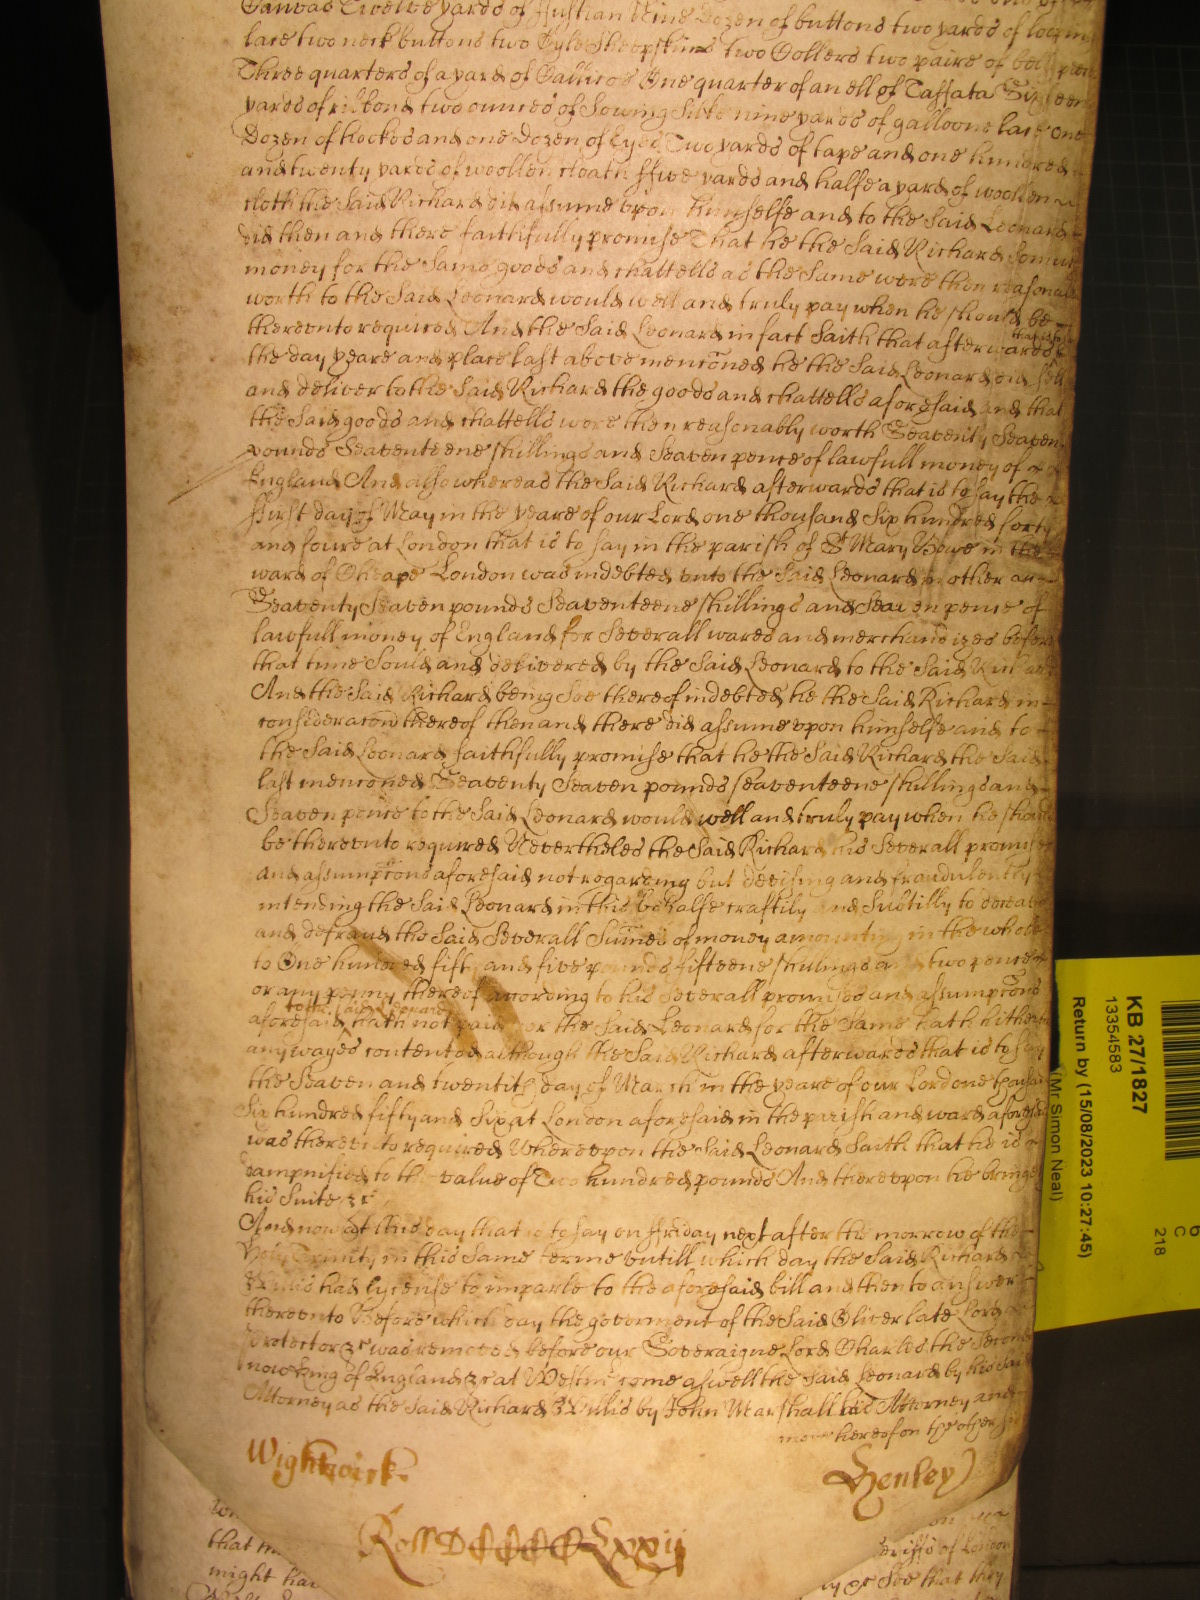 Canvas Twelve yards of ffustian Nine Dozen of buttons two yards of loop
lace two neck buttons two Oyle Sheepskins two Collers two paire of
Three quarters of a yard of Callicoe One quarter of an ell of Taffata
yards of ribbond two ounces of Sowing Silke nine yards of galloone lace one
Dozen of hookes and one Dozen of Eyes Two yards of tape and one hundred
and twenty yards of woollen cloath ffive yards and halfe a yard of woollen
cloth the Said Richard did assume upon himselfe and to the Said Leonard
did then and there faithfully promise That he the Said Richard Somuch
money for the Same goods and chattells as the Same were then reasonably
worth to the Said Leonard would well and truly pay when he should be
thereunto required And the Said Leonard in fact Saith that afterwards
the day yeare and place last above menconed he the Said Leonard did sell
and deliver to the Said Richard the goods and chattells aforesaid and that
the Said goods and chattells were then reasonably worth Seaventy Seaven
pounds Seaventeene shillings and Seaven pence of lawfull money of
England And also whereas the Said Richard afterwards that is to say the
ffirst day of May in the yeare of our Lord one thousand Six hundred forty
and foure at London that is to say in the parish of St Mary Bowe in the
ward of Cheape London was indebted unto the Said Leonard in other
Seaventy Seaven pounds Seaventeene shillings and Seaven pence of
lawfull money of England for Severall wares and merchandizes before
that time Sould and delivered by the Said Leonard to the Said Richard
And the Said Richard being Soe thereof indebted he the Said Richard in
consideracon thereof then and there did assume upon himselfe and to
the Said Leonard faithfully promise that he the Said Richard the Said
last menconed Seaventy Seaven pounds seaventeene shillings and
Seaven pence to the Said Leonard would well and truly pay when he should
be thereunto required Nevertheles the Said Richard his Severall promises
and assumptons aforesaid not regarding but devising and fraudulently
intending the Said Leonard in this behalfe craftily and Subtilly to deceave
and defraud the Said Severall Sumes of money amounting in the whole
to One hundred fifty and five pounds fifteene shillings and two pence
or any penny thereof according to his Severall promises and assumptons
to the said Leonard
aforesaid hath not paid or the Said Leonard for the Same hath hitherto
any wayes contented although the Said Richard afterwards that is to say
the Seaven and twentith day of March in the yeare of our Lord one thousand
Six hundred fifty and Six at London aforesaid in the parish and ward aforesaid
was thereunto required Whereupon the Said Leonard Saith that he is
dampnified to the value of Two hundred pounds And thereupon he brings
his Suite &c
And now at this day that is to say on ffriday next after the morrow of the
Holy Trinity in this Same terme untill which day the Said Richard
Willis had lycense to imparle to the aforesaid bill and then to answer
thereunto Before which day the goverment of the Said Oliver late Lord
Protector &c was removed before our Soveraigne Lord Charles the Second
now King of England &c at Westmr come aswell the Said Leonard by his Said
Attorney as the Said Richard Willis by John Marshall his Attorney and
more hereof on the other
Wightwick
Henley
Roll DCCCC Lxxij
that
might
of London
Soe that they
KB 27/1827
13354583
Return by (15/08/2023 10:27:45)
(Mr Simon Neal)
C
218